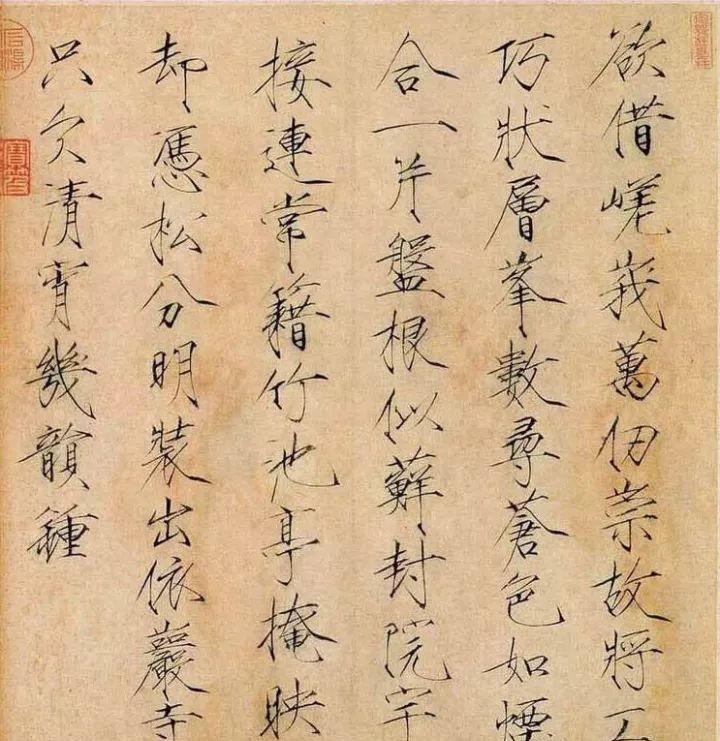 欲借嵯峨萬仞崇故將
巧狀層峯數尋蒼色如煙
合一片盤根似蘚封院宇
接連常籍竹池亭掩映
却憑松分明裝出依巖寺
只欠清宵幾韻鍾